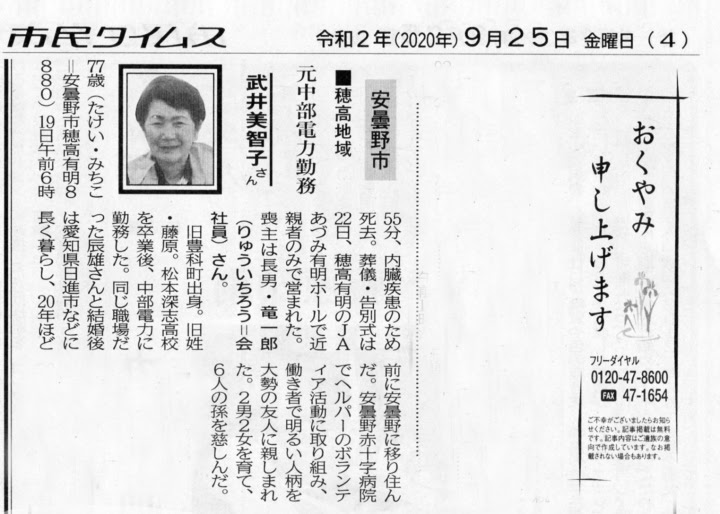 市民タイムス
令和2年(2020年) 9月25日 金曜日 (4)
おくやみ
申し上げます
フリーダイヤル
0120-47-8600
FAX 47-1654
ご不幸がございましたらお知ら
せください。記事掲載は無料
です。記事内容はご遺族の意
向で作成しています。なお掲
載されない場合もあります。
安曇野市
■穂高地域
元中部電力勤務
武井美智子さん
77歳(たけい・みちこ
=安曇野市穂高有明8
880)19日午前6時
55分、内臓疾患のため
死去。葬儀・告別式は
22日、穂高有明のJA
あづみ有明ホールで近
親者のみで営まれた。
喪主は長男・竜一郎
(りゅういちろう=会
社員)さん。
旧豊科町出身。旧姓
・藤原。松本深志高校
を卒業後、中部電力に
勤務した。同じ職場だ
った辰雄さんと結婚後
は愛知県日進市などに
長く暮らし、20年ほど
前に安曇野に移り住ん
だ。安曇野赤十字病院
でヘルパーのボランテ
ィア活動に取り組み、
働き者で明るい人柄を
大勢の友人に親しまれ
た。2男2女を育て、
6人の孫を慈しんだ。